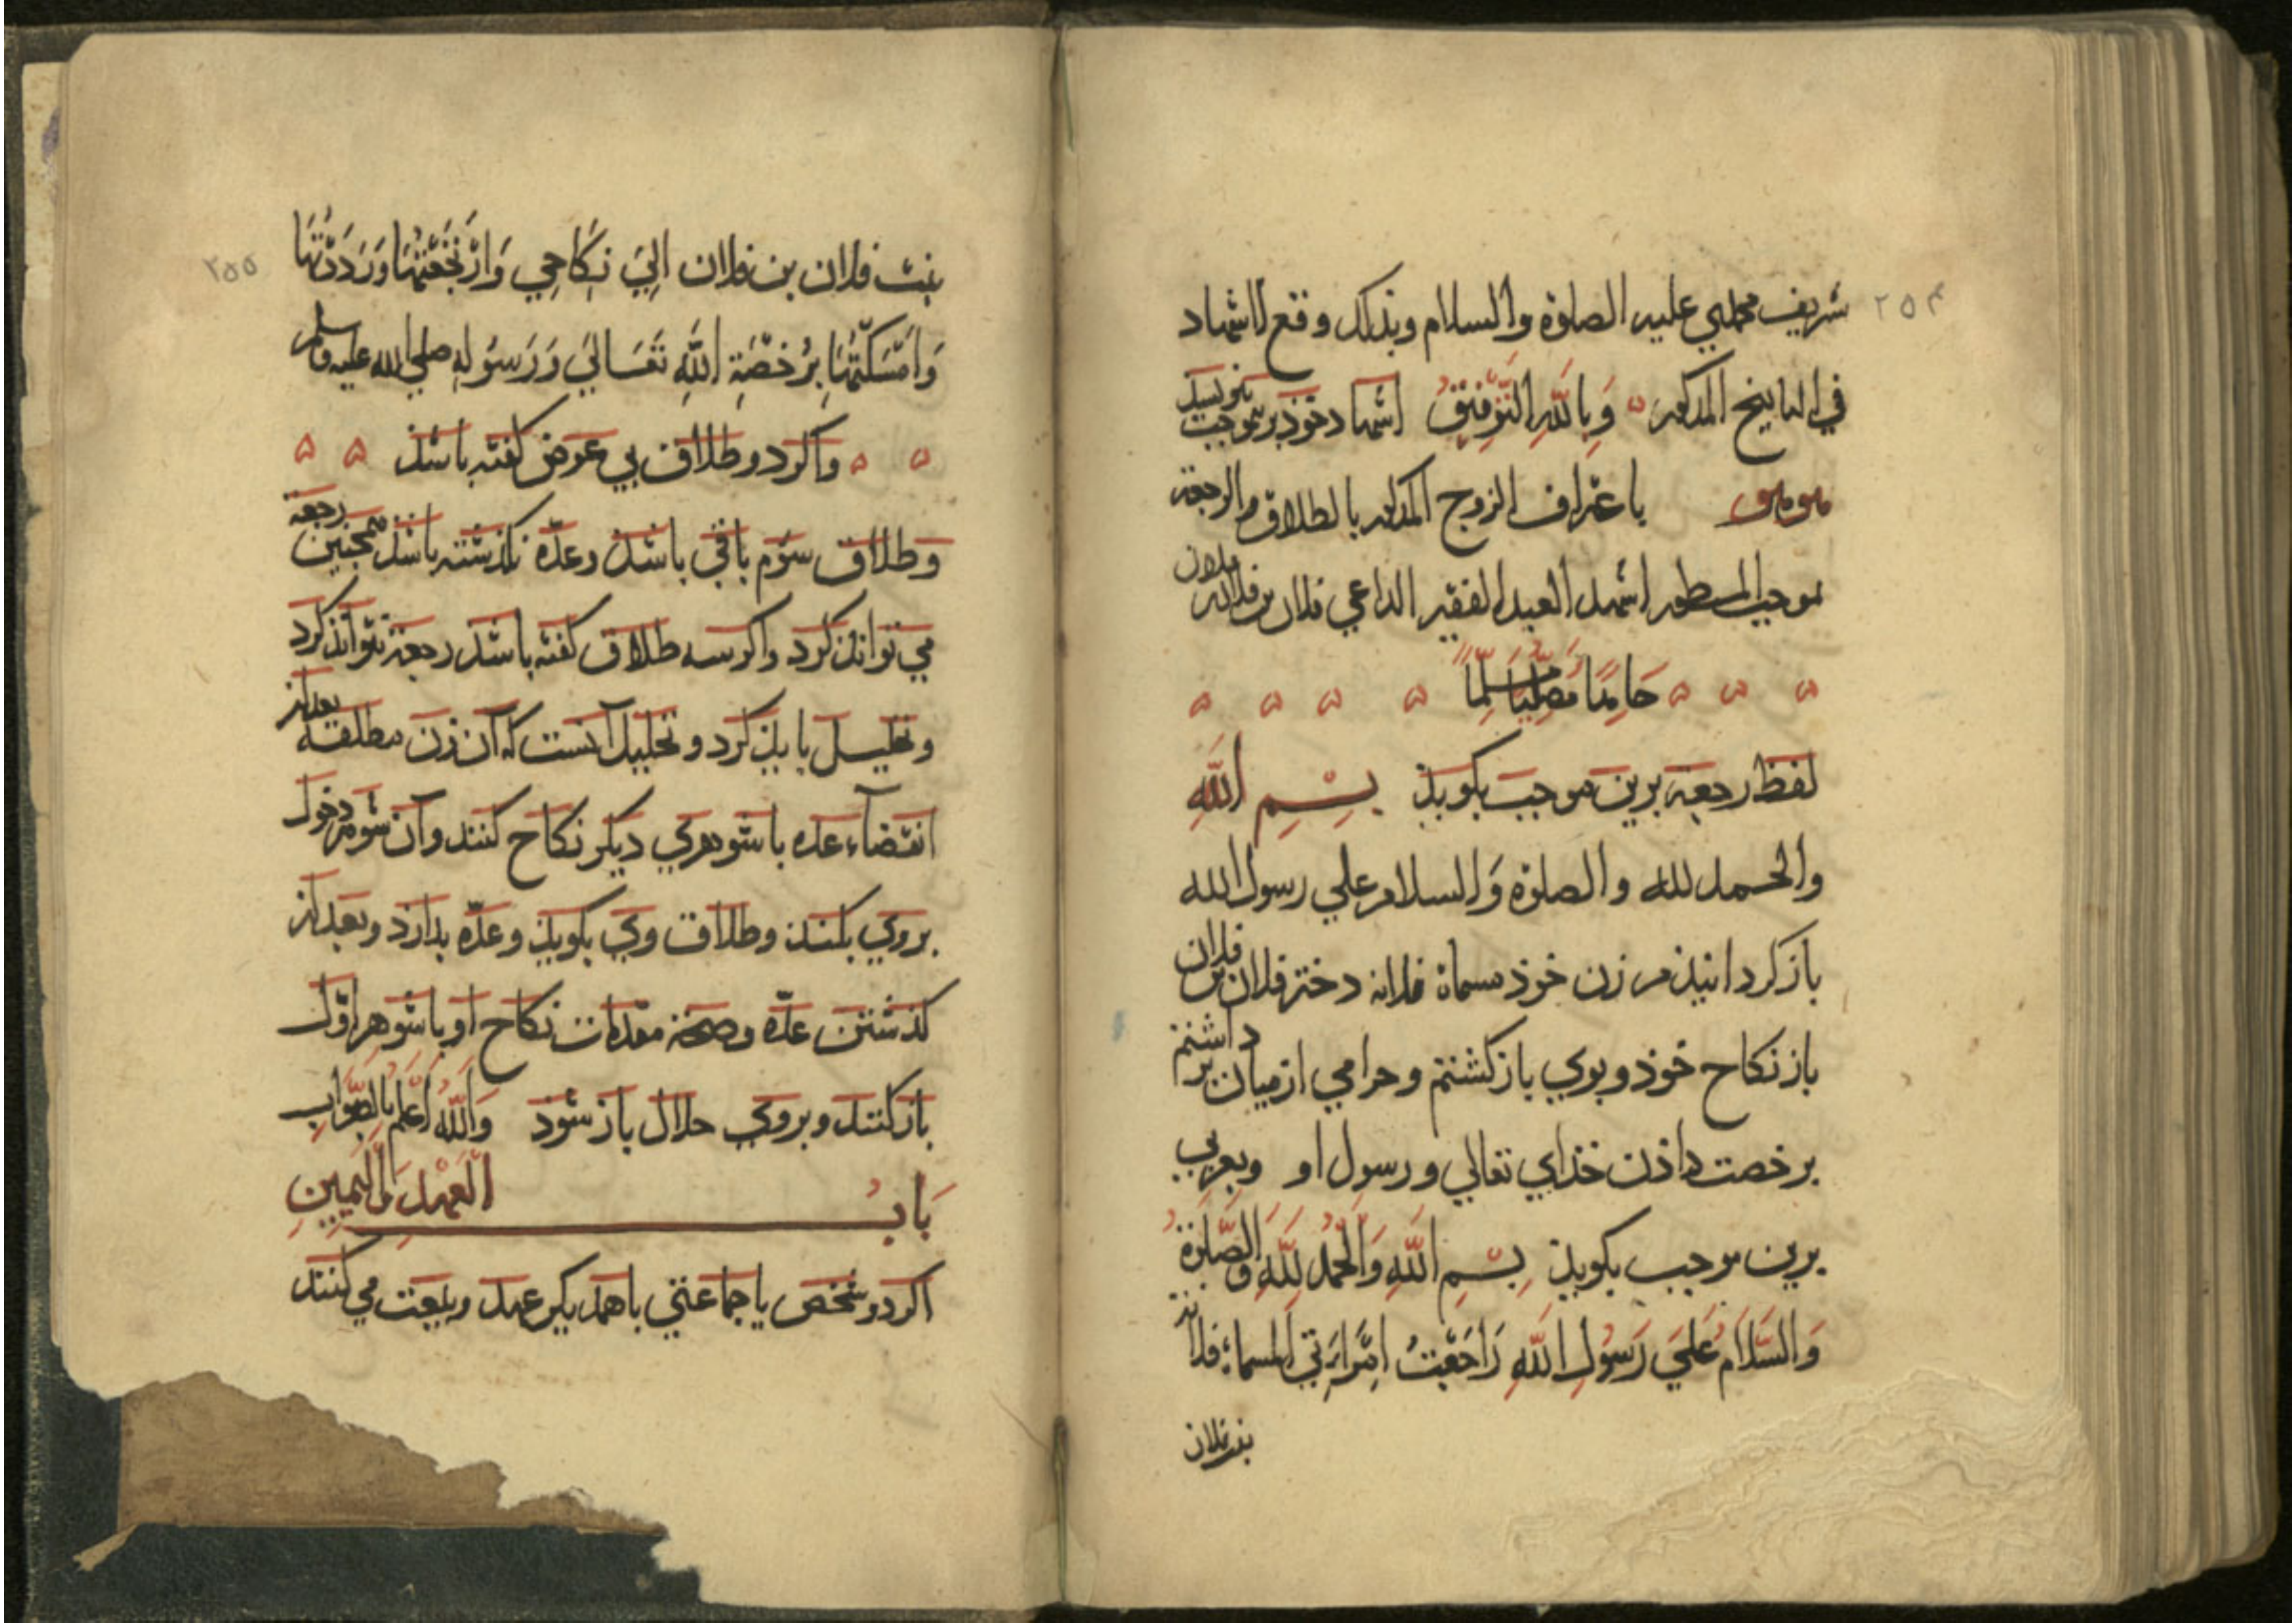 ۲۵۴
شريف محمدي عليه الصلوة والسلام وبذلك وقع الاشهاد
في التاريخ المذكور وَبِاللَّهِ التَّوْفِيقُ اشهاد خوذ برين موجب بنويسد
باعتراف الزوج المذكور بالطلاق والرجعة
بموجب المسطور اشهد العبد الفقير الداعي فلان بن فلان
حَامِدًا مُصَلِّيًا مُسَلِّمًا
لفظ رجعة برين موجب بكويذ بِسْمِ اللَّهِ
والحمد لله والصلوة وَالسلام علي رسول الله
باز كردانيذم زن خوذ مسماة فلانه دختر فلان بن فلان
باز نكاح خوذ وبوي باز كشتم وحرامي از ميان بر داشتم
برخصت داذن خذاي تعالي و رسول او وبعربي
برين موجب بكويذ بِسْمِ اللَّهِ وَالْحَمْدُ لِلَّهِ وَالصَّلوةُ
وَالسَّلَامُ عَلَي رَسُولِ اللَّهِ رَاجَعْتُ امْرَاَتِي المسماة فلانة
بنت فلان
۲۵۵
بنت فلان بن فلان اِلَيَ نِكَاحِي وَارْتَجَعْتُهَا وَرَدَدْتُهَا
وَاَمْسَكْتُهَا بِرُخْصَةِ اللَّهِ تَعَالَيَ وَرَسُولِهِ صلي الله عليه وسلم
واكر دو طلاق بي عوض كفته باشذ
وطلاق سوم باقي باشذ وعدّه نكذشته باشذ همجنين رجعة
مي تواند كرد واكر سه طلاق كفته باشذ رجعة نتواند كرد
وتحليل بايذ كرد وتحليل آنست كه آن زن مطلقه بعد از
انقضآء عده باشوهري ديكر نكاح كنند وآن شوهر دخول
بروي بكنذ وطلاق وي بكويذ وعدّه بدارد وبعد از
كذشتن عدّه وصحة مقدمات نكاح او باشوهر اوّل
باز كنند و بروي حلال باز شوذ وَاللَّهُ اَعْلَمُ بِالصَّوَابِ
بَابُ الْعَهْدِ وَالْيَمِينِ
اكر دو شخص يا جماعتي باهمديكر عهد وبيعت مي كنند